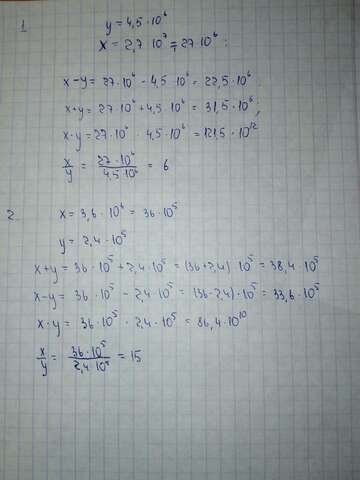 1
y = 4,5 · 10⁶
x = 2,7 · 10⁷ = 27 · 10⁶ :
x - y = 27 · 10⁶ - 4,5 · 10⁶ = 22,5 · 10⁶
x + y = 27 · 10⁶ + 4,5 · 10⁶ = 31,5 · 10⁶,
x · y = 27 · 10⁶ · 4,5 · 10⁶ = 121,5 · 10¹²
x/y = 27 · 10⁶ / 4,5 · 10⁶ = 6
2. x = 3,6 · 10⁶ = 36 · 10⁵
y = 2,4 · 10⁵
x + y = 36 · 10⁵ + 2,4 · 10⁵ = (36 + 2,4) · 10⁵ = 38,4 · 10⁵
x - y = 36 · 10⁵ - 2,4 · 10⁵ = (36 - 2,4) · 10⁵ = 33,6 · 10⁵
x · y = 36 · 10⁵ · 2,4 · 10⁵ = 86,4 · 10¹⁰
x/y = 36 · 10⁵ / 2,4 · 10⁵ = 15